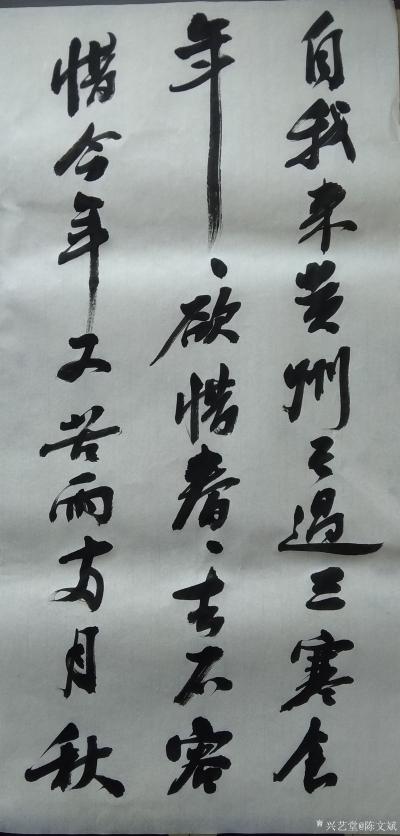 自我来黄州已过三寒食
年、欲惜春、去不容
惜今年又苦雨两月秋
兴艺堂@陈文斌